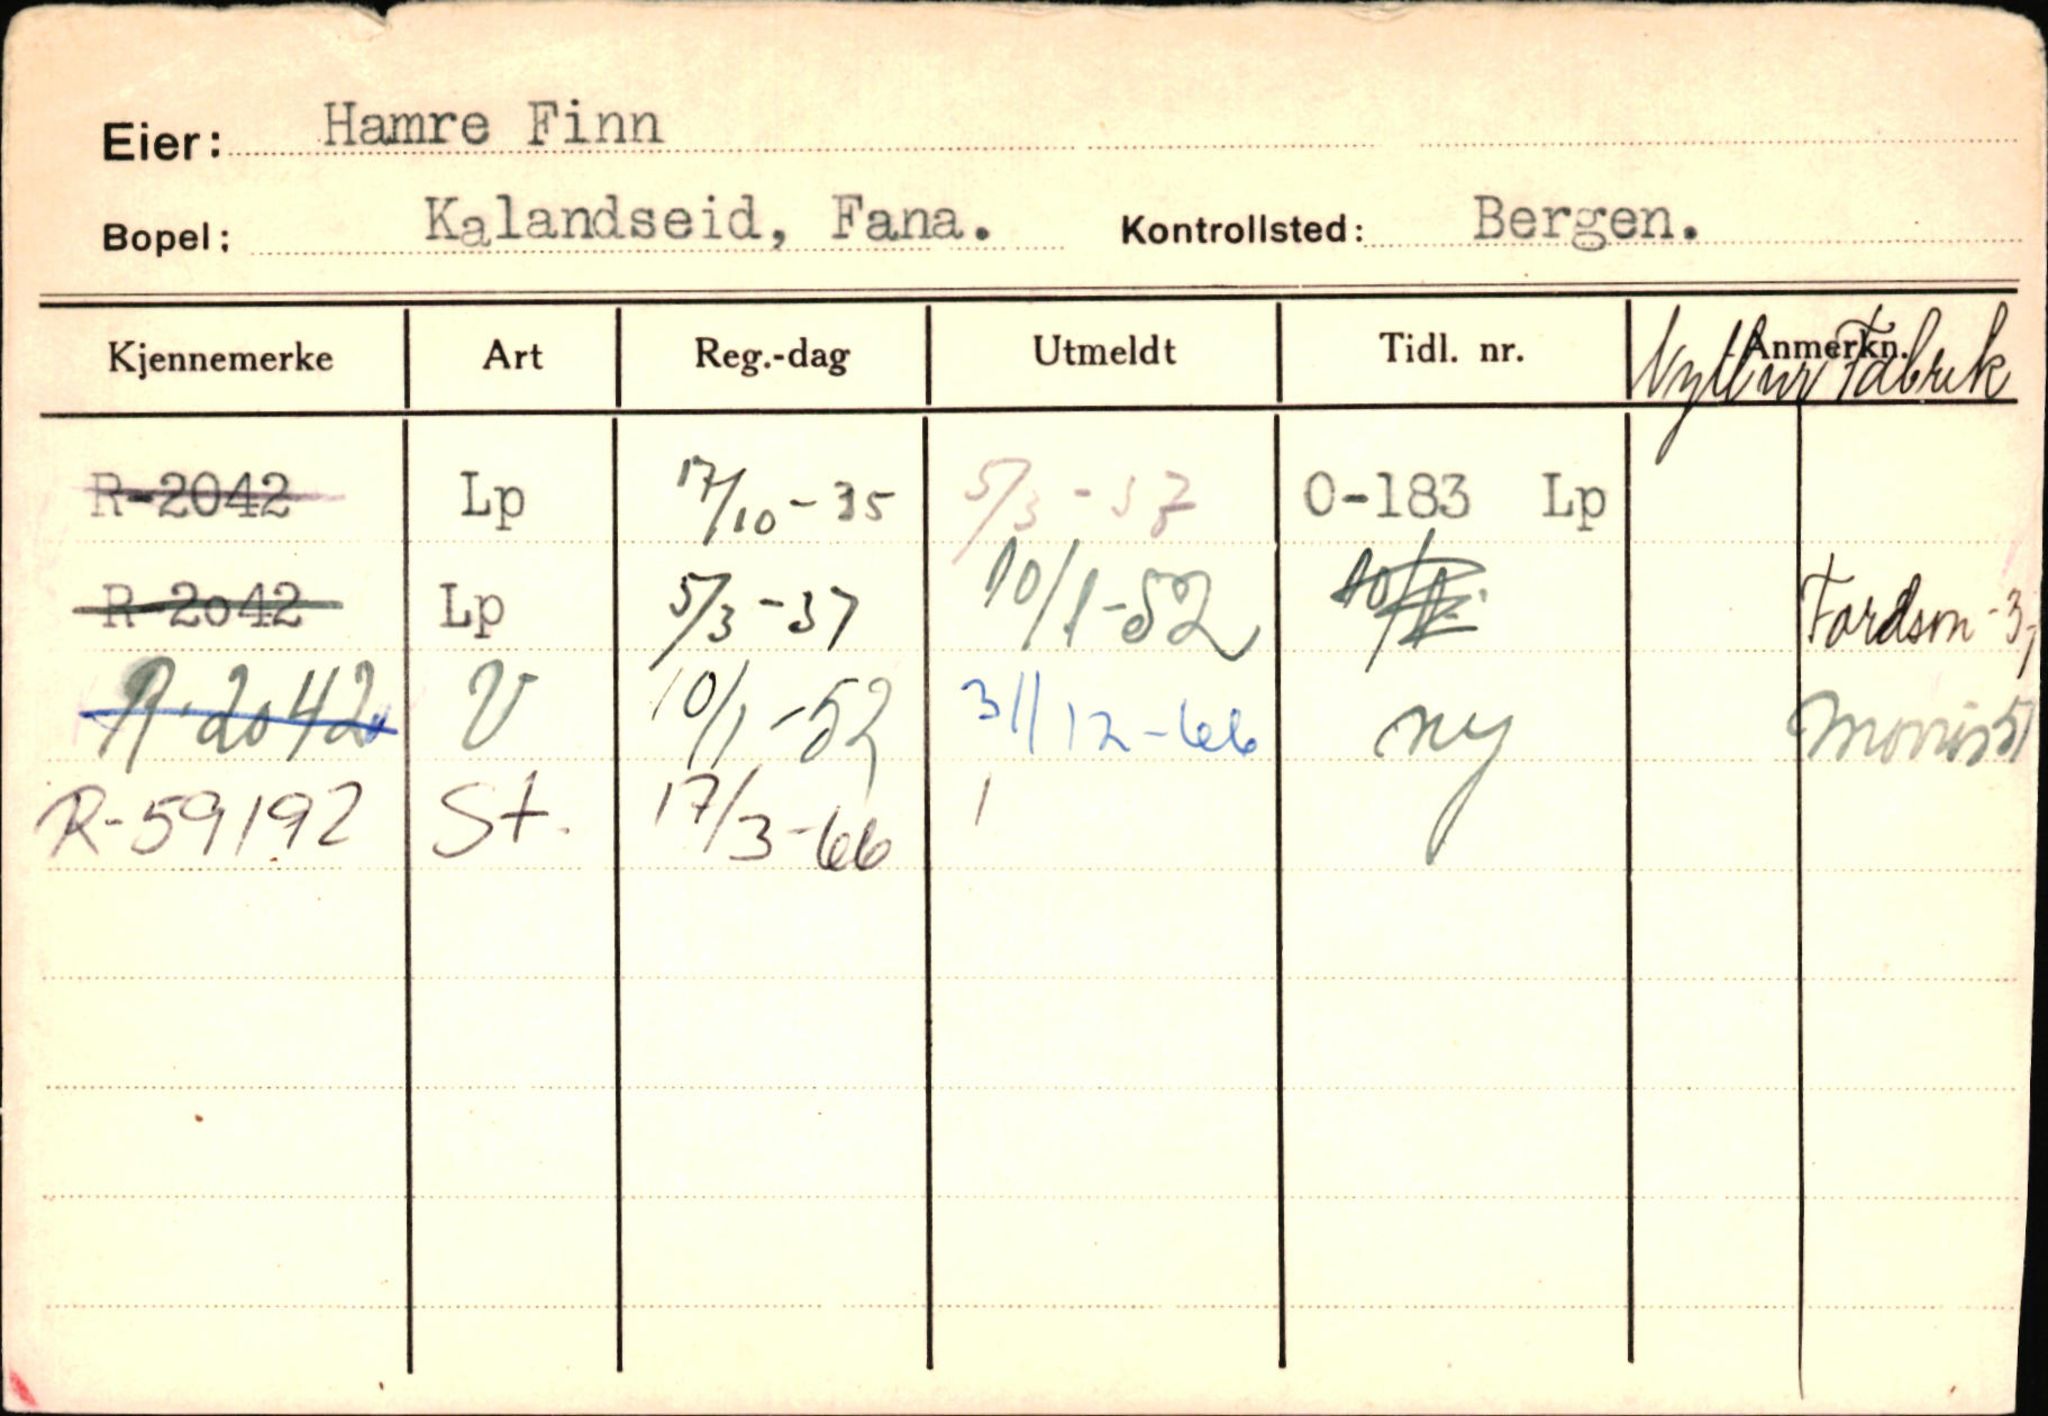 Eier: Hamre Finn
Bopel: Kalandseid, Fana. Kontrollsted: Bergen.
Kjennemerke Art Reg.-dag Utmeldt Tidl. nr. Anmerkn. Nytt nr Fabrik
R-2042 Lp 17/10-35 5/3-37 O-183 Lp
R-2042 Lp 5/3-37 10/1-52 10/1 Fordson-37
R-2042 V 10/1-52 31/12-66 ny Morris 51
R-59192 St. 17/3-66 1